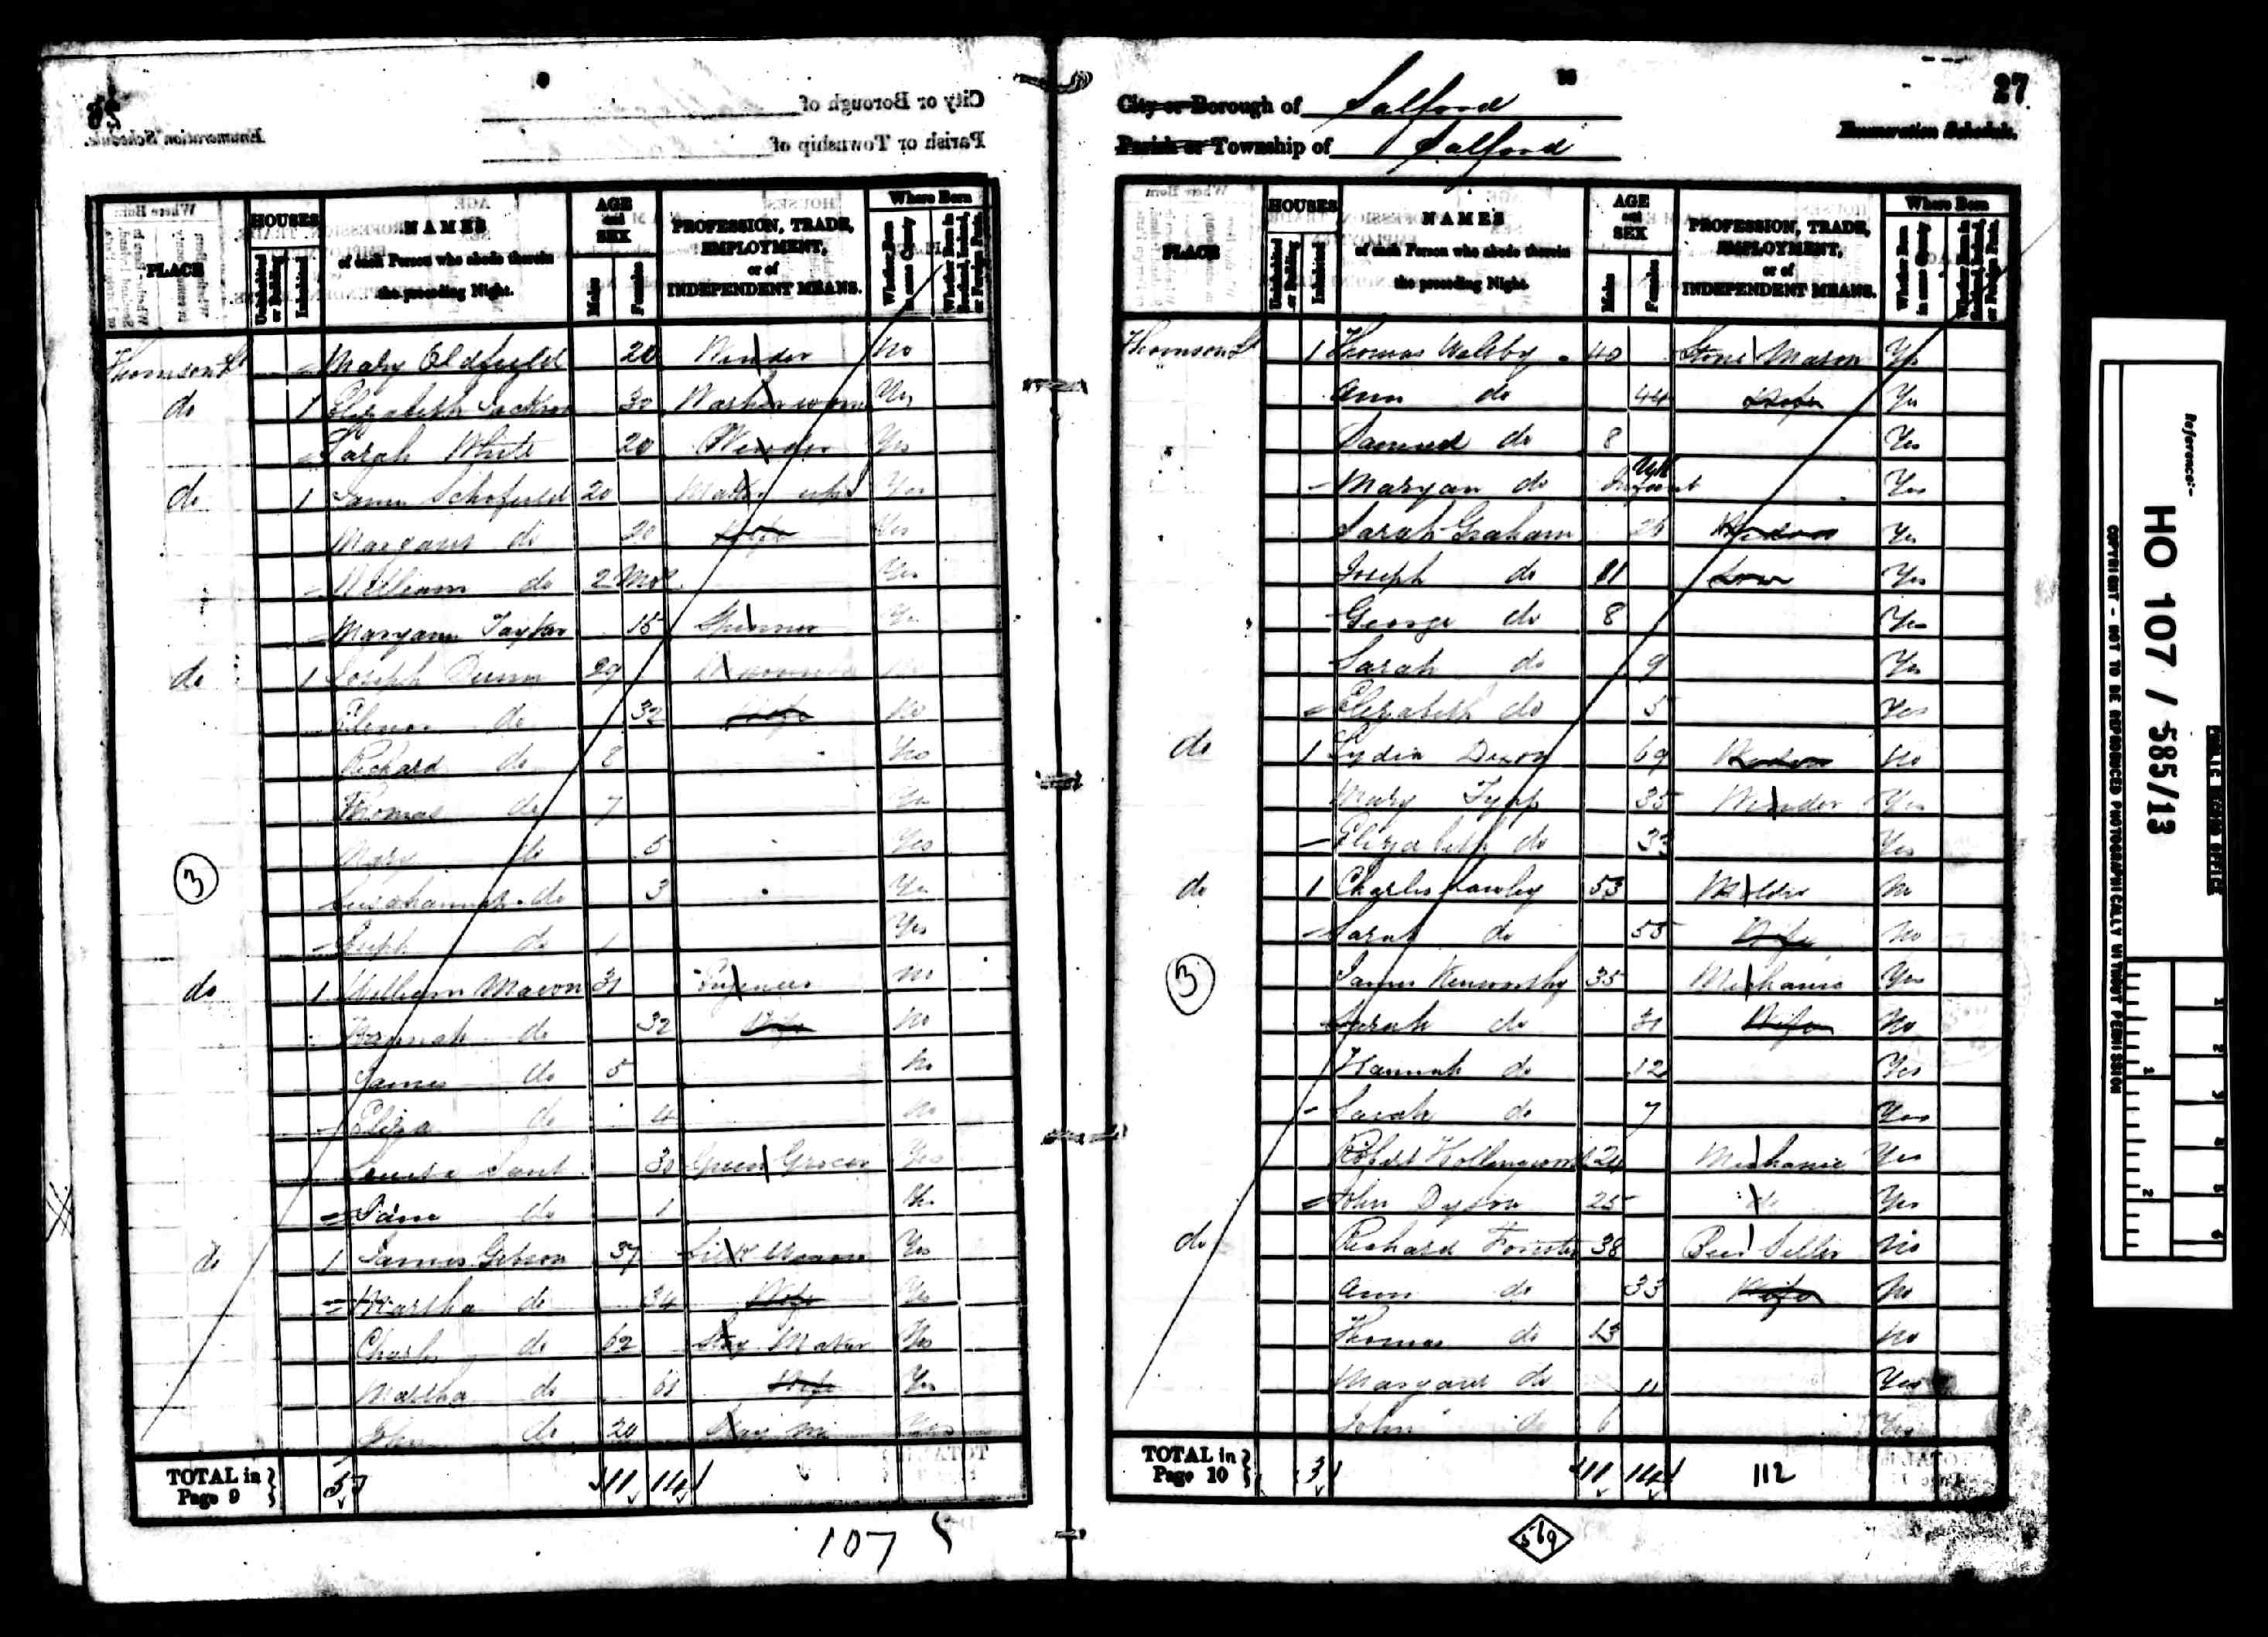 City or Borough of
Parish or Township of
Enumeration Schedule.
PLACE
HOUSES
Uninhabited or Building
Inhabited
NAMES
of each Person who abode therein
the preceding Night.
AGE and SEX
Males
Females
PROFESSION, TRADE,
EMPLOYMENT,
or of
INDEPENDENT MEANS.
Where Born
Whether Born in same County
Whether Born in Scotland, Ireland, or Foreign Parts.
Thomson St Mary Oldfield 20 Winder No
do 1 Elizabeth Jackson 30 Washerwom Yes
Sarah White 20 Winder Yes
do 1 James Schofield 20 Yes
Margaret do 20 Wife Yes
William do 2 Mos Yes
Maryann Taylor 15 Spinner Yes
do 1 Joseph Dunn 29
Elenor do 32 Wife No
Richard do 8 No
Thomas do 7 Yes
Mary do 5 Yes
Susahannah do 3 Yes
Joseph do 1 Yes
3
do 1 William Mason 31 Engineer No
Hannah do 32 Wife No
James do 5 No
Eliza do 4 No
Louisa 30 Green Grocer Yes
Jane do 1 Yes
do 1 James Gibson 37 Silk Yes
Martha do 34 Wife Yes
Charles do 62 Maker Yes
Martha do 61 Wife Yes
John do 20 Yes
TOTAL in Page 9 5 11 14
107
27
City or Borough of Salford
Parish or Township of Salford
Enumeration Schedule.
PLACE
HOUSES
Uninhabited or Building
Inhabited
NAMES
of each Person who abode therein
the preceding Night.
AGE and SEX
Males
Females
PROFESSION, TRADE,
EMPLOYMENT,
or of
INDEPENDENT MEANS.
Where Born
Whether Born in same County
Whether Born in Scotland, Ireland, or Foreign Parts.
Thomson St 1 Thomas Walsby 40 Stone Mason Yes
Ann do 44 Wife Yes
Samuel do 8 Yes
Maryan do Infant Yes
Sarah Graham Widow Yes
Joseph do 11 Son Yes
George do 8 Yes
Sarah do 9 Yes
Elizabeth do 5 Yes
do 1 Lydia Dixon 69 Widow No
Mary 35 Winder Yes
Elizabeth do 33 Yes
do 1 Charles Lawley 53 No
Sarah do 55 Wife No
3
James Kenworthy 35 Mechanic Yes
Sarah do 31 Wife No
Hannah do 12 Yes
Sarah do 7 Yes
Robert Hollingworth 24 Mechanic Yes
John Dyson 25 Yes
do Richard Forester 38 Beer Seller No
Ann do 33 Wife No
Thomas do 13 No
Margaret do 11 Yes
John do 6 Yes
TOTAL in Page 10 3 11 14 112
569
Reference:-
HO 107 / 585/13
PUBLIC RECORD OFFICE
COPYRIGHT - NOT TO BE REPRODUCED PHOTOGRAPHICALLY WITHOUT PERMISSION
1 2 3 4 5 6
1 2